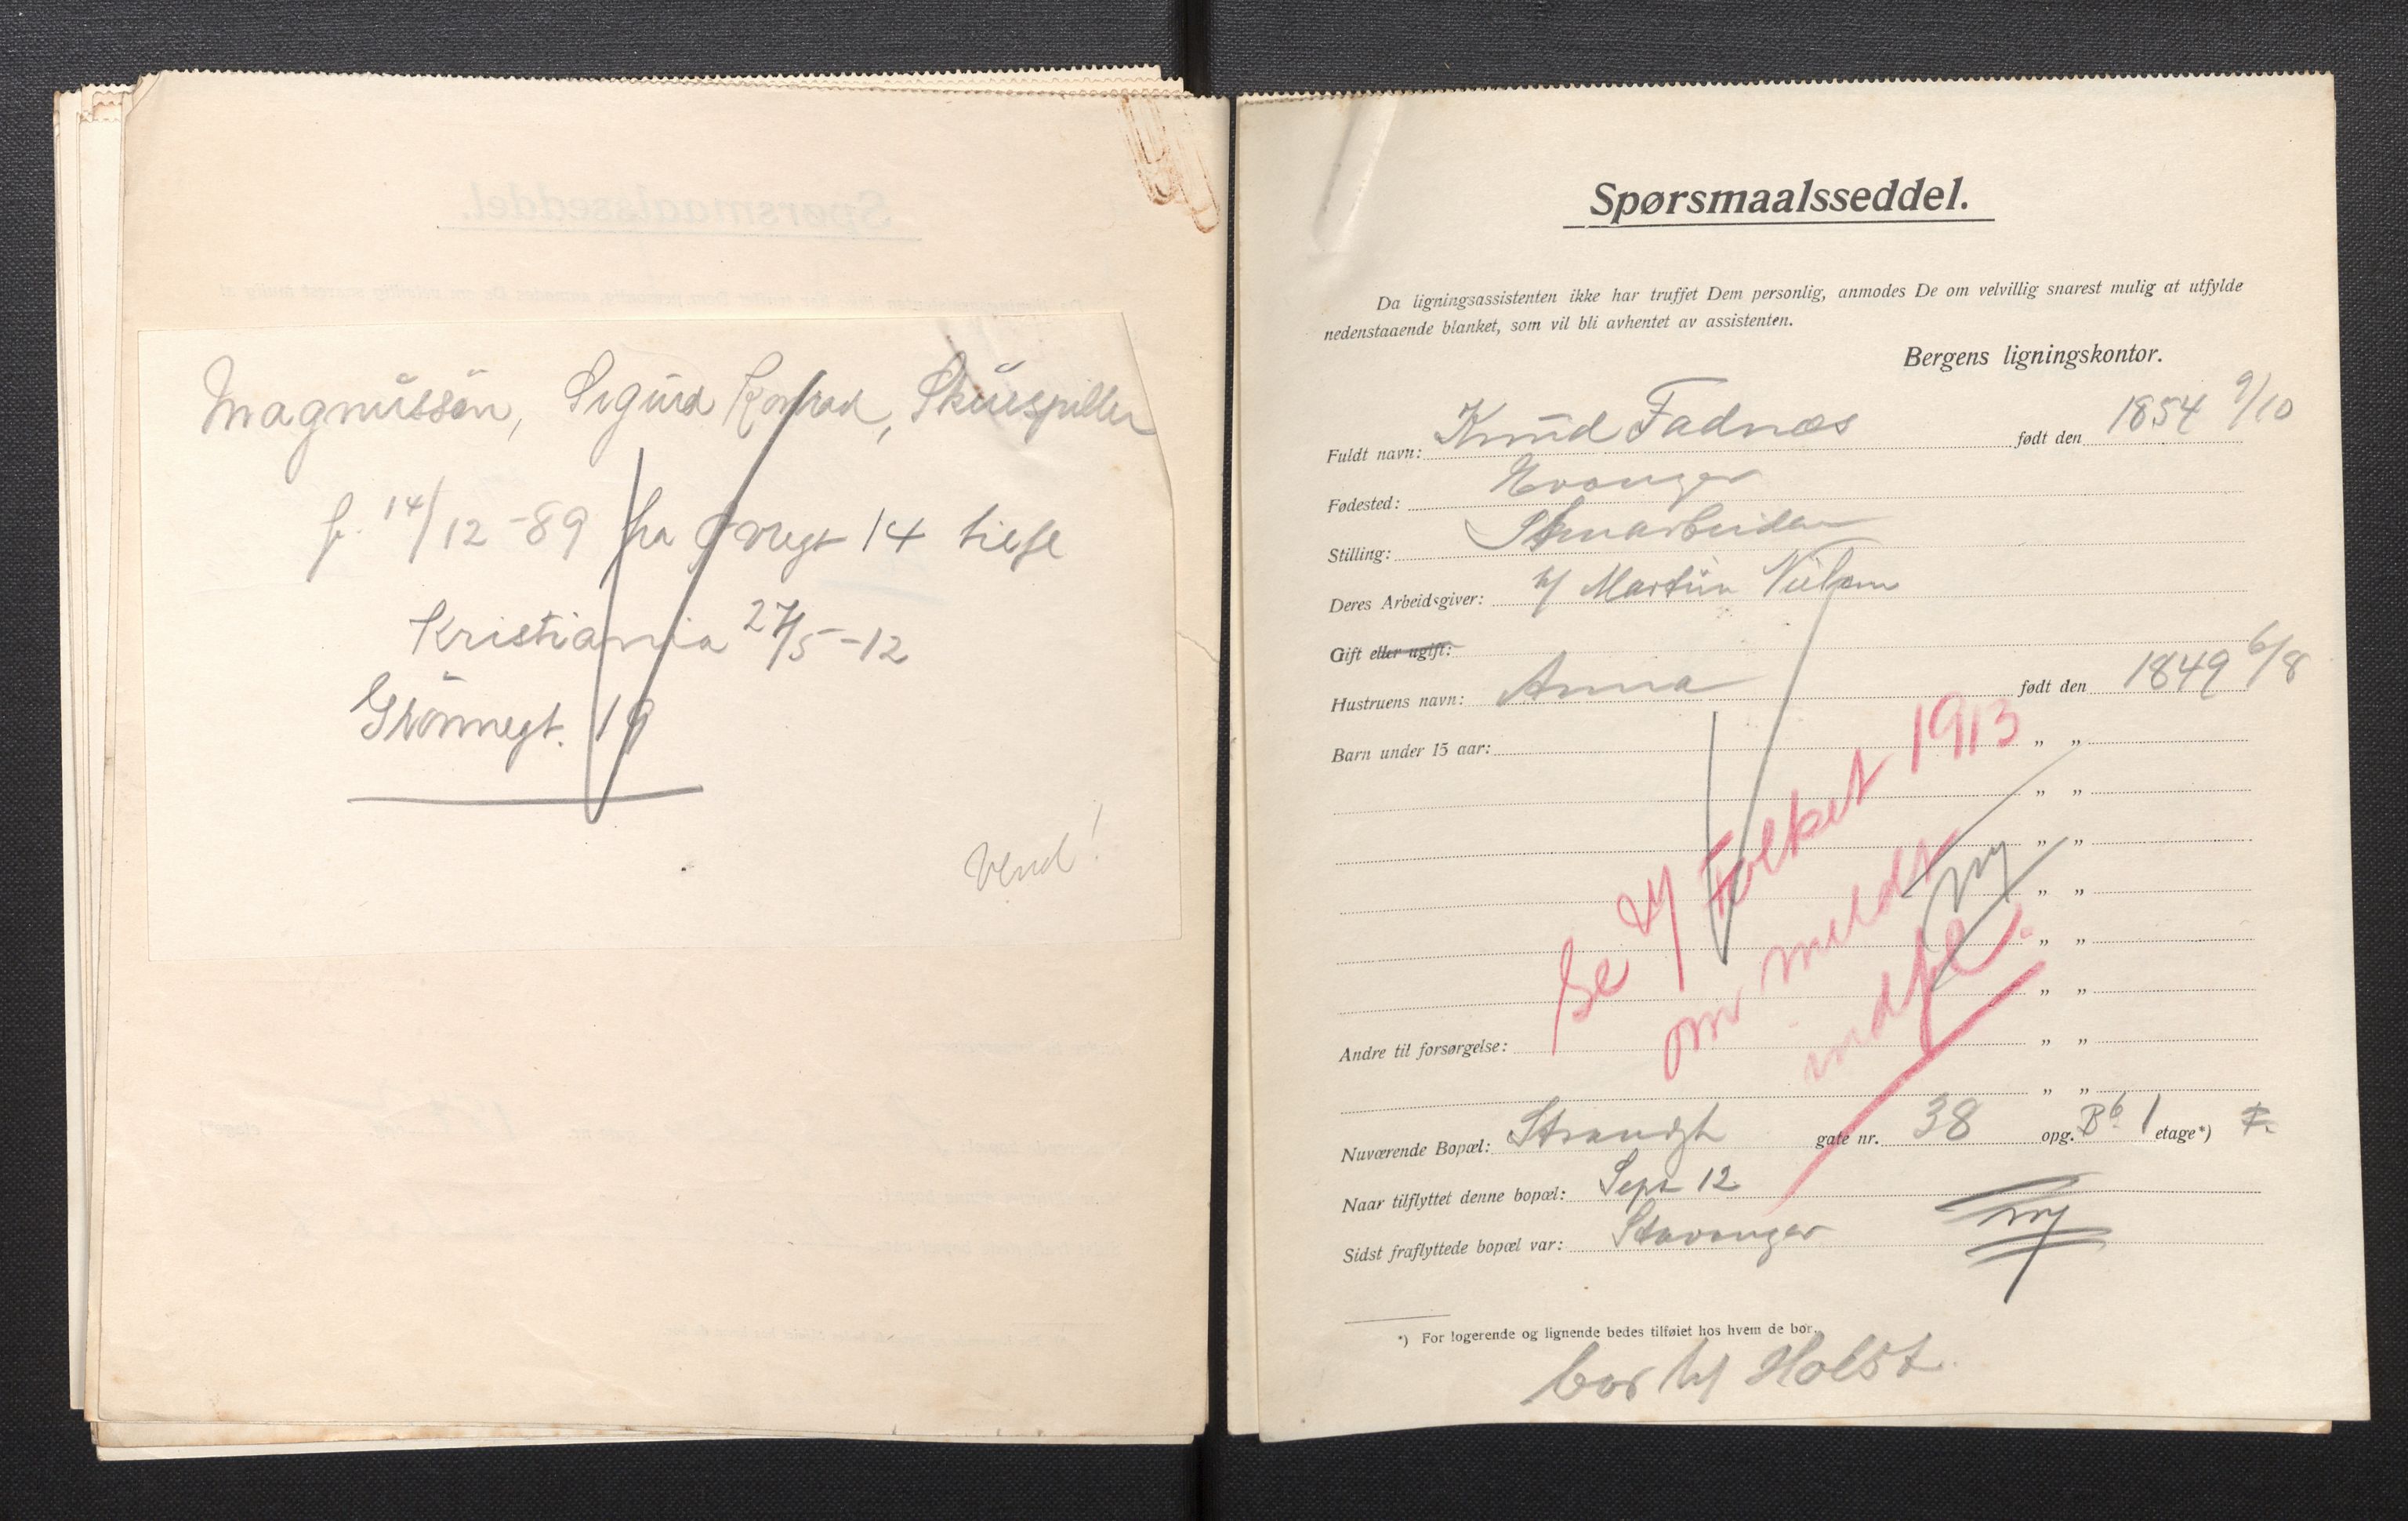 Magnussen, Sigurd Konrad, Skuespiller
f. 14/12-89 fra Øvregt 14 til
Kristiania 27/5-12
Grønnegt. 19
Vend!
Spørsmaalsseddel.
Da ligningsassistenten ikke har truffet Dem personlig, anmodes De om velvillig snarest mulig at utfylde
nedenstaaende blanket, som vil bli avhentet av assistenten.
Bergens ligningskontor.
Fuldt navn: Knud Fadnæs født den 1854 9/10
Fødested: Evanger
Stilling: Skoarbeider
Deres Arbeidsgiver: h/ Martin Nielsen
Gift eller ugift:
Hustruens navn: Anna født den 1849 6/8
Barn under 15 aar: " "
" "
" "
" "
" "
" "
Andre til forsørgelse: " "
" "
Se Folket 1913
om meldt
indfl.
ny
Nuværende Bopæl: Strandgt gate nr. 38 opg. B b 1 etage*)
Naar tilflyttet denne bopæl: Sept 12
Sidst fraflyttede bopæl var: Stavanger ny
*) For logerende og lignende bedes tilføiet hos hvem de bor.
bor h/ Holst.